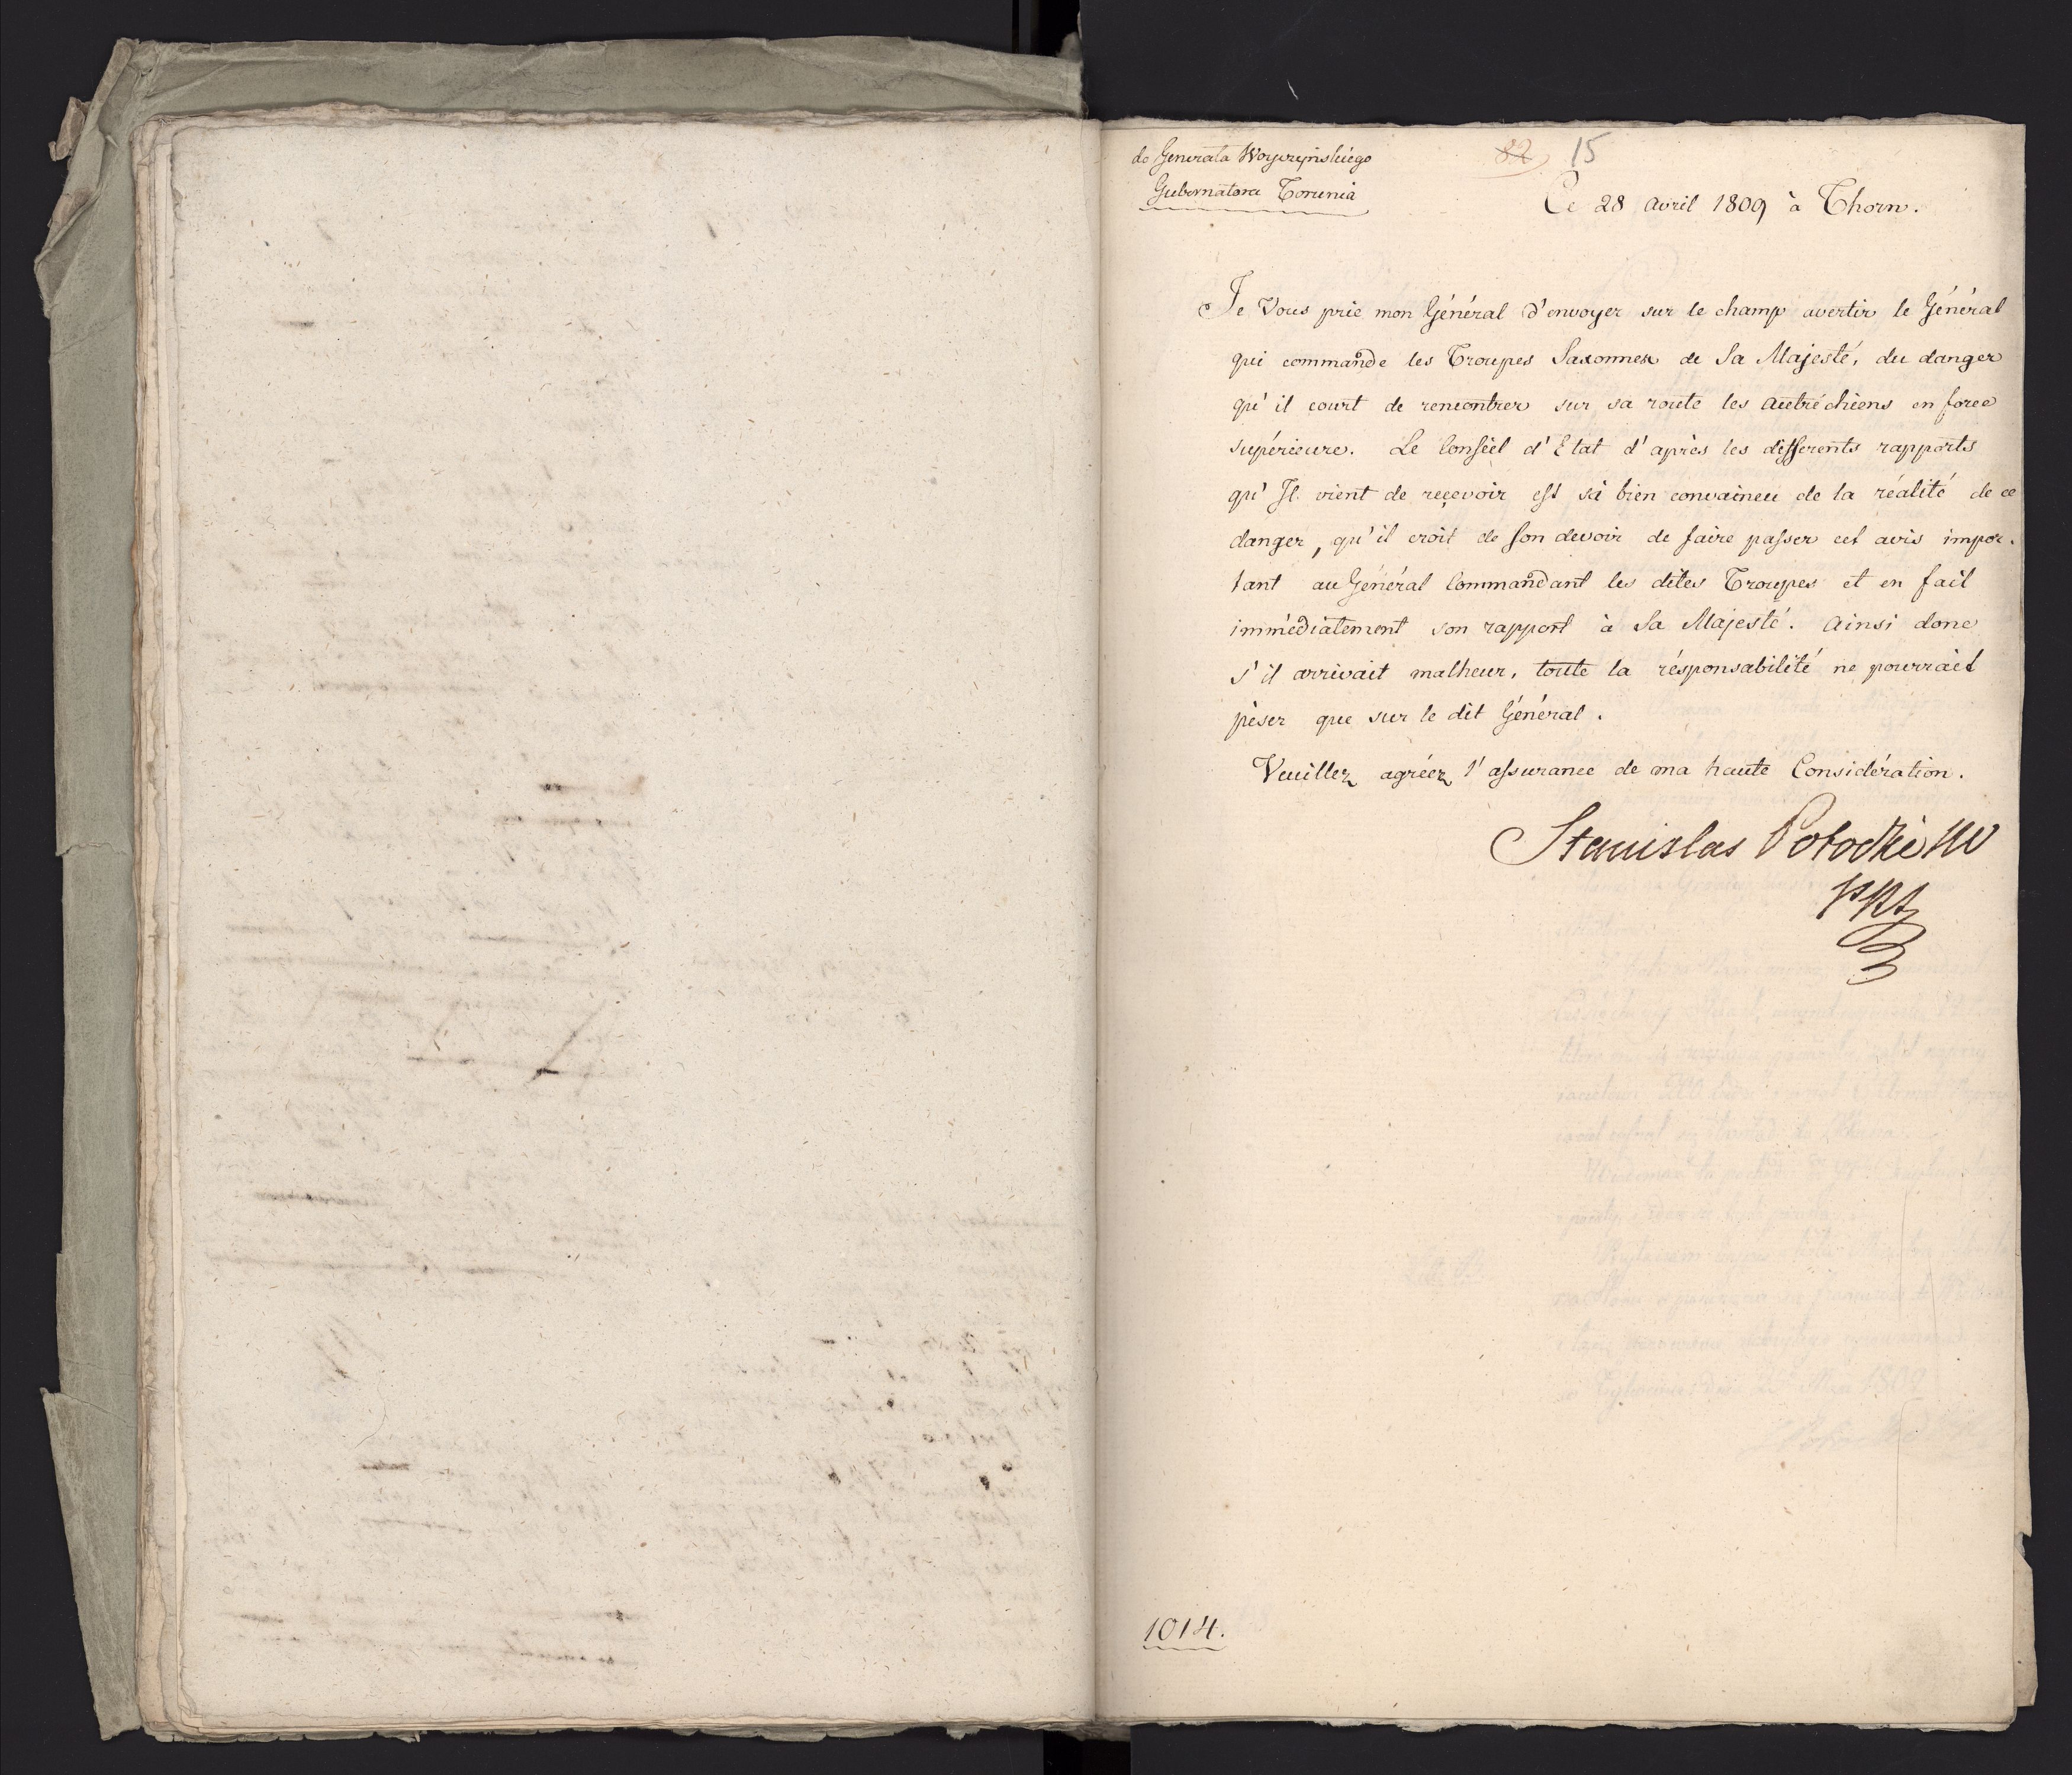 do Generała Woyczyńskiego
Gubernatora Torunia
82 15
Ce 28 Avril 1809 à Thorn.
Je Vous prie mon Général d'envoyer sur le champ avertir le Général
qui commande les Troupes Saxonnes de Sa Majesté, du danger
qu'il court de rencontrer sur sa route les Autrichiens en force
supérieure. Le Conseil d'Etat d'après les differents rapports
qu'Il vient de reçevoir est si bien convaincu de la réalité de ce
danger, qu'il croit de son devoir de faire passer cet avis impor-
tant au Général Commandant les dites Troupes et en fait
immédiatement son rapport à Sa Majesté. Ainsi donc
s'il arrivait malheur, toute la résponsabilité ne pourrait
pèser que sur le dit Général.
Veuillez agréez l'assurance de ma haute Considération.
Stanislas Potocki
1014.